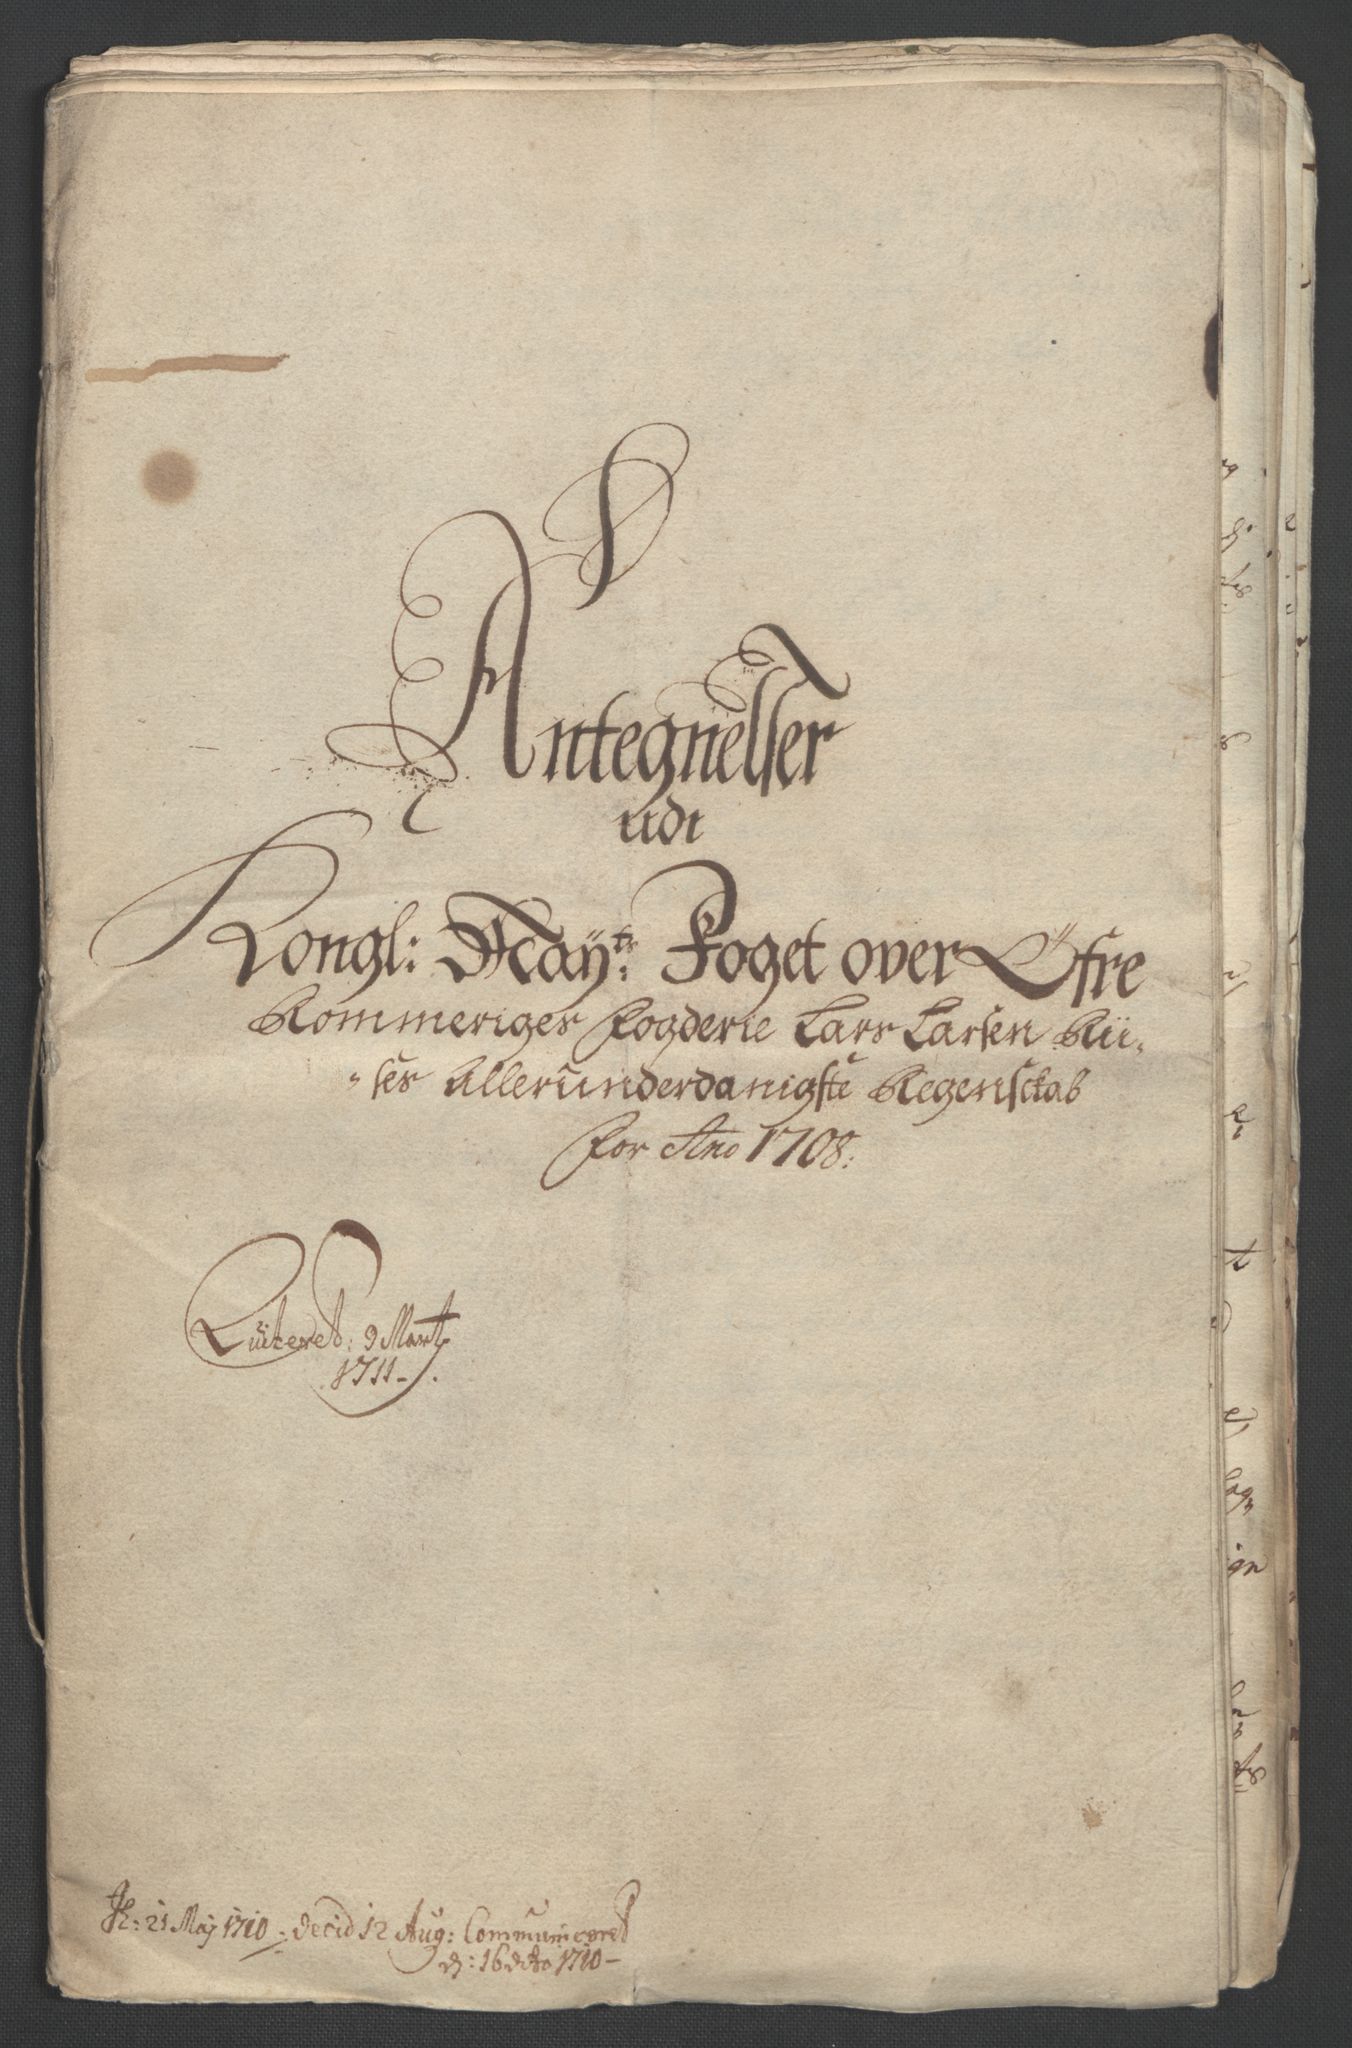 Antegnelser
udi
Kongl: Mayts: Foget over Öfre
Rommeriges Fogderie Lars Larsen Rü-
-ses Allerunderdanigste Regenschab
for Ano 1708:
Quiteret: 9 Marty
1711-.
R: 21 Maj 1710 - decid 12 Aug: Communiceret
d: 16 dito 1710-